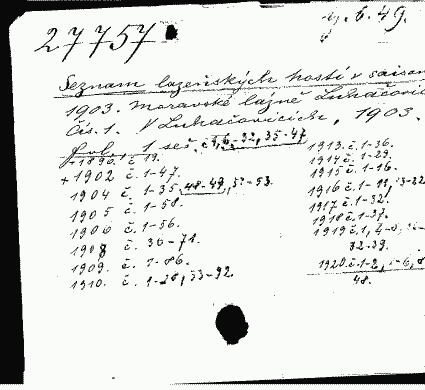 27757
y. 6. 49.
Seznam lazeňských hostí v saison
1903. Moravské lázně Luhačovic
Čís. 1. V Luhačovicích, 1903.
fol. 1 seš. č. 1, 6-32, 35-47
+ 1896 č. 19.
+ 1902 č. 1-47.
1904 č. 1-35, 48-49, 51-53.
1905 č. 1-58.
1906 č. 1-56.
1908 č. 30-71.
1909. č. 1-86.
1910. č. 1-28, 33-92.
1913. č. 1-36.
1914 č. 1-29.
1915 č. 1-16.
1916 č. 1-11, 13-22
1917 č. 1-32.
1918 č. 1-37.
1919 č. 1,
32-39.
1920. č. 1-2,
48.